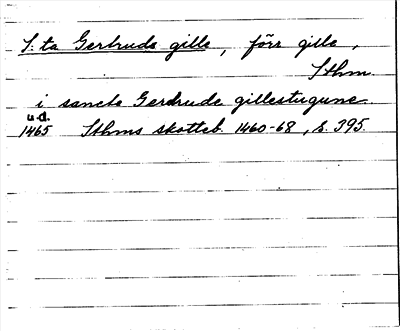 S:ta Gertruds gille, förr gille,
Sthm.
i sancte Gerdrude gillestugune
u.d.
1465 Sthms skotteb. 1460-68, s. 395.